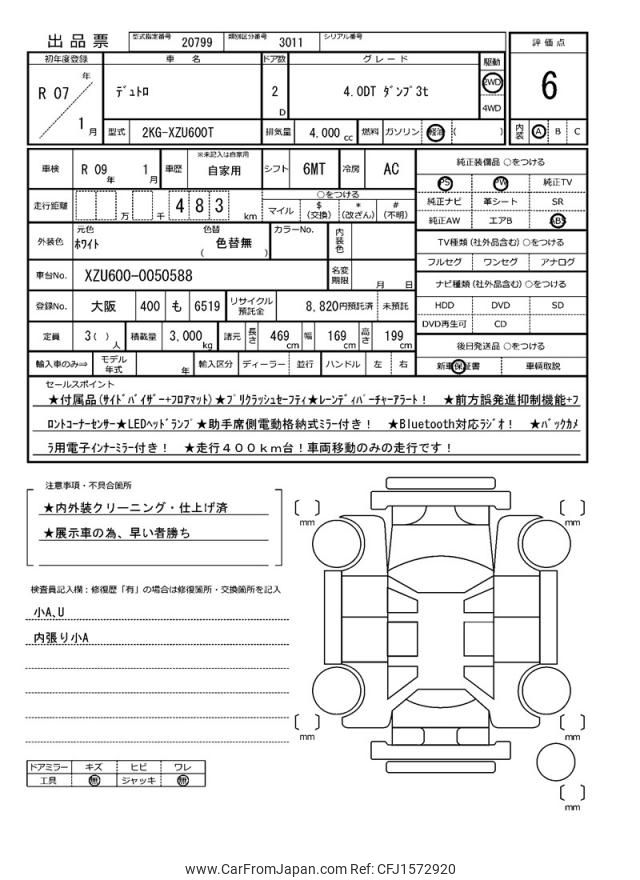 出品票 型式指定番号 20799 類別区分番号 3011 シリアル番号
評価点
6
内装 A B C
初年度登録 車名 ドア数 グレード 駆動
R 07 年 1 月 デュトロ 2 D 4.0DT ダンプ3t 2WD 4WD
型式 2KG-XZU600T 排気量 4,000 cc 燃料 ガソリン 軽油 ( )
車検 R 09 年 1 月 車歴 ※未記入は自家用 自家用 シフト 6MT 冷房 AC
走行距離 万 千 4 8 3 km ○をつける
マイル $(交換) *(改ざん) #(不明)
外装色 元色 ホワイト 色替 ( 色替無 ) カラーNo. 内装色
車台No. XZU600-0050588 名変期限 月 日
登録No. 大阪 400 も 6519 リサイクル預託金 8,820円預託済 未預託
定員 3( )人 積載量 3,000 kg 諸元 長さ 469 cm 幅 169 cm 高さ 199 cm
輸入車のみ⇒ モデル年式 年 輸入区分 ディーラー 並行 ハンドル 左 右
純正装備品 ○をつける
PS PW 純正TV
純正ナビ 革シート SR
純正AW エアB ABS
TV種類(社外品含む)○をつける
フルセグ ワンセグ アナログ
ナビ種類(社外品含む)○をつける
HDD DVD SD
DVD再生可 CD
後日発送品 ○をつける
新車保証書 車輌取説
セールスポイント
★付属品(サイドバイザー+フロアマット)★プリクラッシュセーフティ★レーンディパーチャーアラート! ★前方誤発進抑制機能+フ
ロントコーナーセンサー★LEDヘッドランプ★助手席側電動格納式ミラー付き! ★Bluetooth対応ラジオ! ★バックカメ
ラ用電子インナーミラー付き! ★走行400km台!車両移動のみの走行です!
注意事項・不具合箇所
★内外装クリーニング・仕上げ済
★展示車の為、早い者勝ち
検査員記入欄:修復歴「有」の場合は修復箇所・交換箇所を記入
小A,U
内張り小A
ドアミラー キズ ヒビ ワレ
工具 無 ジャッキ 無
mm
mm
mm
mm
mm
www.CarFromJapan.com Ref: CFJ1572920